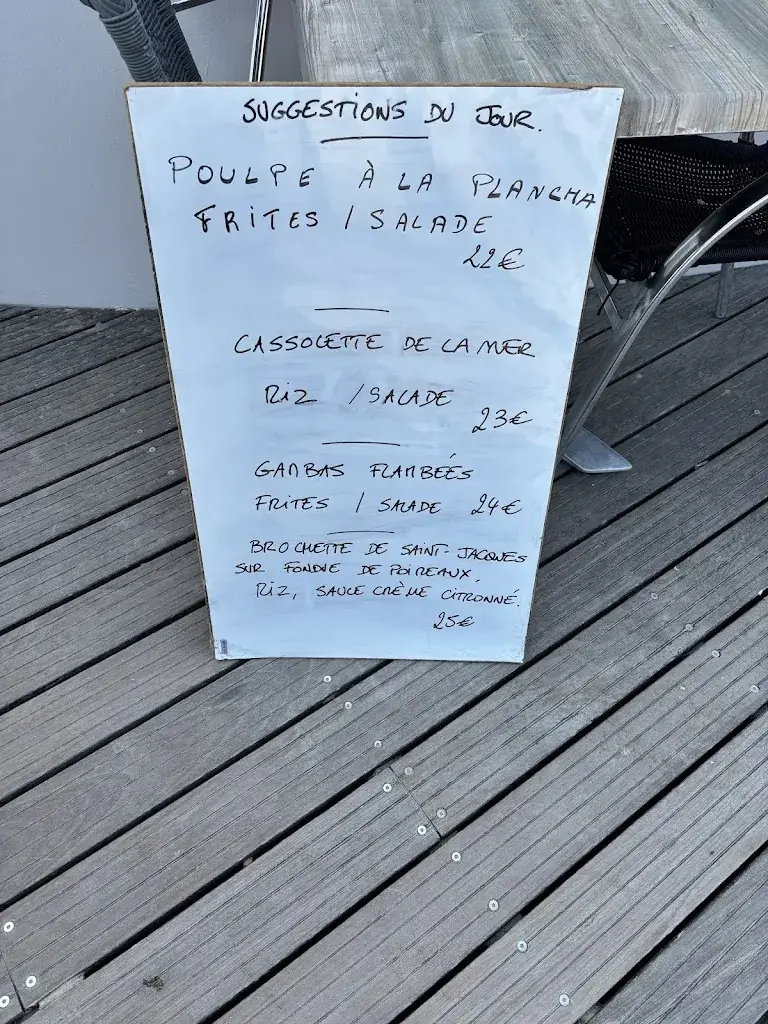 SUGGESTIONS DU JOUR.
POULPE À LA PLANCHA
FRITES / SALADE
22€
CASSOLETTE DE LA MER
RIZ / SALADE
23€
GAMBAS FLAMBEÉS
FRITES / SALADE 24€
BROCHETTE DE SAINT-JACQUES
SUR FONDUE DE POIREAUX.
RIZ, SAUCE CRÈME CITRONNÉ.
25€